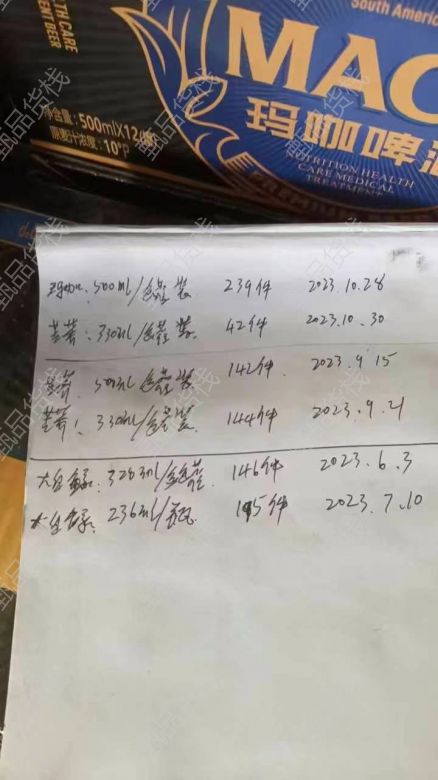 HEALTH CARE
ENT BEER
South America
MAC
净含量: 500mlX12
原麦汁浓度: 10°P
玛咖啤酒
NUTRITION HEALTH
CARE MEDICAL
TREATMENT
玛咖: 500ml/罐装 239件 2023.10.28
苦荞: 330ml/罐装 42件 2023.10.30
苦荞 500ml/罐装 142件 2023.9.15
苦荞: 330ml/罐装 144件 2023.9.21
大白鲨: 328ml/罐 146件 2023.6.3
大白鲨: 236ml/瓶 195件 2023.7.10
甄品货栈